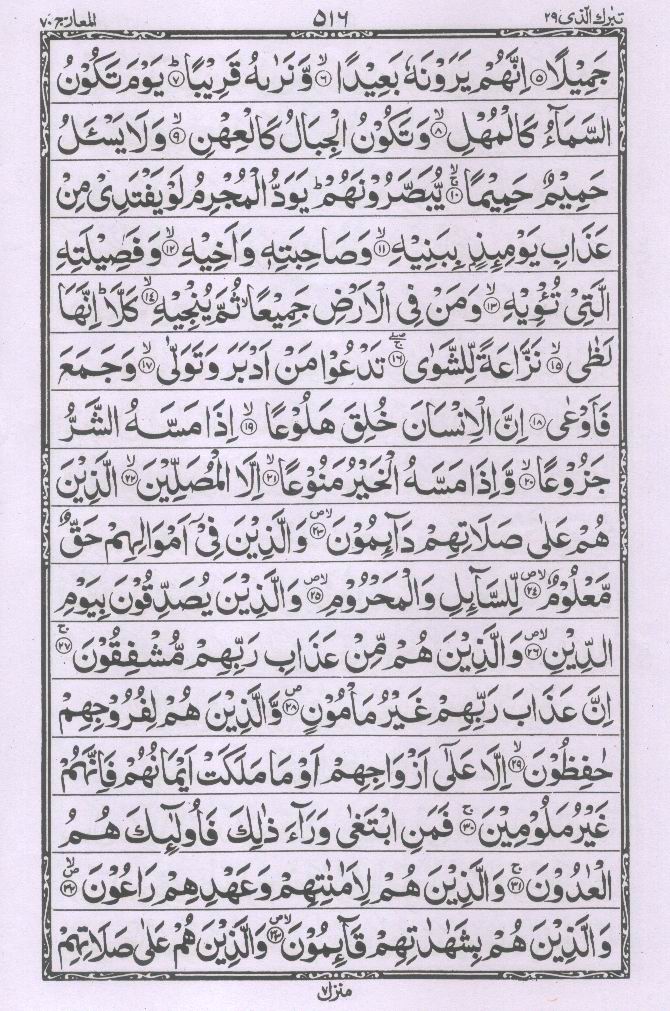 تبٰرك الّذى ٢٩ ٥١٦ المعارج ٧٠
جَمِيْلًا ۝٥ اِنَّهُمْ يَرَوْنَهٗ بَعِيْدًا ۙ۝٦ وَّ نَرٰىهُ قَرِيْبًا ؕ۝٧ يَوْمَ تَكُوْنُ
السَّمَآءُ كَالْمُهْلِ ۙ۝٨ وَ تَكُوْنُ الْجِبَالُ كَالْعِهْنِ ۙ۝٩ وَ لَا يَسْـَٔلُ
حَمِيْمٌ حَمِيْمًا ۚۖ۝١٠ يُّبَصَّرُوْنَهُمْ ؕ يَوَدُّ الْمُجْرِمُ لَوْ يَفْتَدِىْ مِنْ
عَذَابِ يَوْمِئِذٍۭ بِبَنِيْهِ ۙ۝١١ وَ صَاحِبَتِهٖ وَ اَخِيْهِ ۙ۝١٢ وَ فَصِيْلَتِهِ
الَّتِىْ تُـْٔوِيْهِ ۙ۝١٣ وَ مَنْ فِى الْاَرْضِ جَمِيْعًا ۙ ثُمَّ يُنْجِيْهِ ۙ۝١٤ كَلَّا ؕ اِنَّهَا
لَظٰى ۙ۝١٥ نَزَّاعَةً لِّلشَّوٰى ۚۖ۝١٦ تَدْعُوْا مَنْ اَدْبَرَ وَ تَوَلّٰى ۙ۝١٧ وَ جَمَعَ
فَاَوْعٰى ۝١٨ اِنَّ الْاِنْسَانَ خُلِقَ هَلُوْعًا ۙ۝١٩ اِذَا مَسَّهُ الشَّرُّ
جَزُوْعًا ۙ۝٢٠ وَّ اِذَا مَسَّهُ الْخَيْرُ مَنُوْعًا ۙ۝٢١ اِلَّا الْمُصَلِّيْنَ ۙ۝٢٢ الَّذِيْنَ
هُمْ عَلٰى صَلَاتِهِمْ دَآئِمُوْنَ ۪ۙ۝٢٣ وَ الَّذِيْنَ فِىْۤ اَمْوَالِهِمْ حَقٌّ
مَّعْلُوْمٌ ۪ۙ۝٢٤ لِّلسَّآئِلِ وَ الْمَحْرُوْمِ ۪ۙ۝٢٥ وَ الَّذِيْنَ يُصَدِّقُوْنَ بِيَوْمِ
الدِّيْنِ ۪ۙ۝٢٦ وَ الَّذِيْنَ هُمْ مِّنْ عَذَابِ رَبِّهِمْ مُّشْفِقُوْنَ ۚ۝٢٧
اِنَّ عَذَابَ رَبِّهِمْ غَيْرُ مَاْمُوْنٍ ۪۝٢٨ وَ الَّذِيْنَ هُمْ لِفُرُوْجِهِمْ
حٰفِظُوْنَ ۙ۝٢٩ اِلَّا عَلٰۤى اَزْوَاجِهِمْ اَوْ مَا مَلَكَتْ اَيْمَانُهُمْ فَاِنَّهُمْ
غَيْرُ مَلُوْمِيْنَ ۚ۝٣٠ فَمَنِ ابْتَغٰى وَرَآءَ ذٰلِكَ فَاُولٰٓئِكَ هُمُ
الْعٰدُوْنَ ۚ۝٣١ وَ الَّذِيْنَ هُمْ لِاَمٰنٰتِهِمْ وَ عَهْدِهِمْ رَاعُوْنَ ۪ۙ۝٣٢
وَ الَّذِيْنَ هُمْ بِشَهٰدٰتِهِمْ قَآئِمُوْنَ ۪ۙ۝٣٣ وَ الَّذِيْنَ هُمْ عَلٰى صَلَاتِهِمْ
منزل ٧